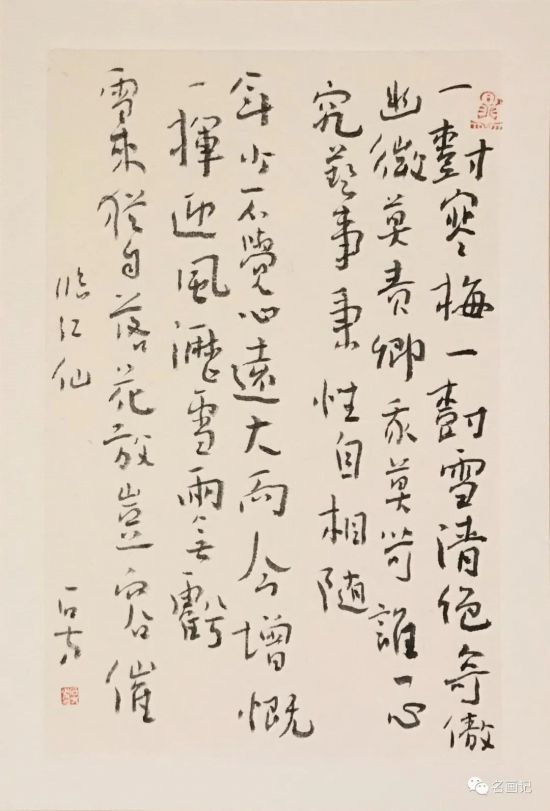 一樹寒梅一樹雪清絕奇傲
幽微莫責卿我莫苛誰一心
究藝事秉性自相随
年少不覺心遠大而今增慨
一揮迎風瀝雪兩無虧
雪來猶自落花放豈容催
臨江仙
名画记